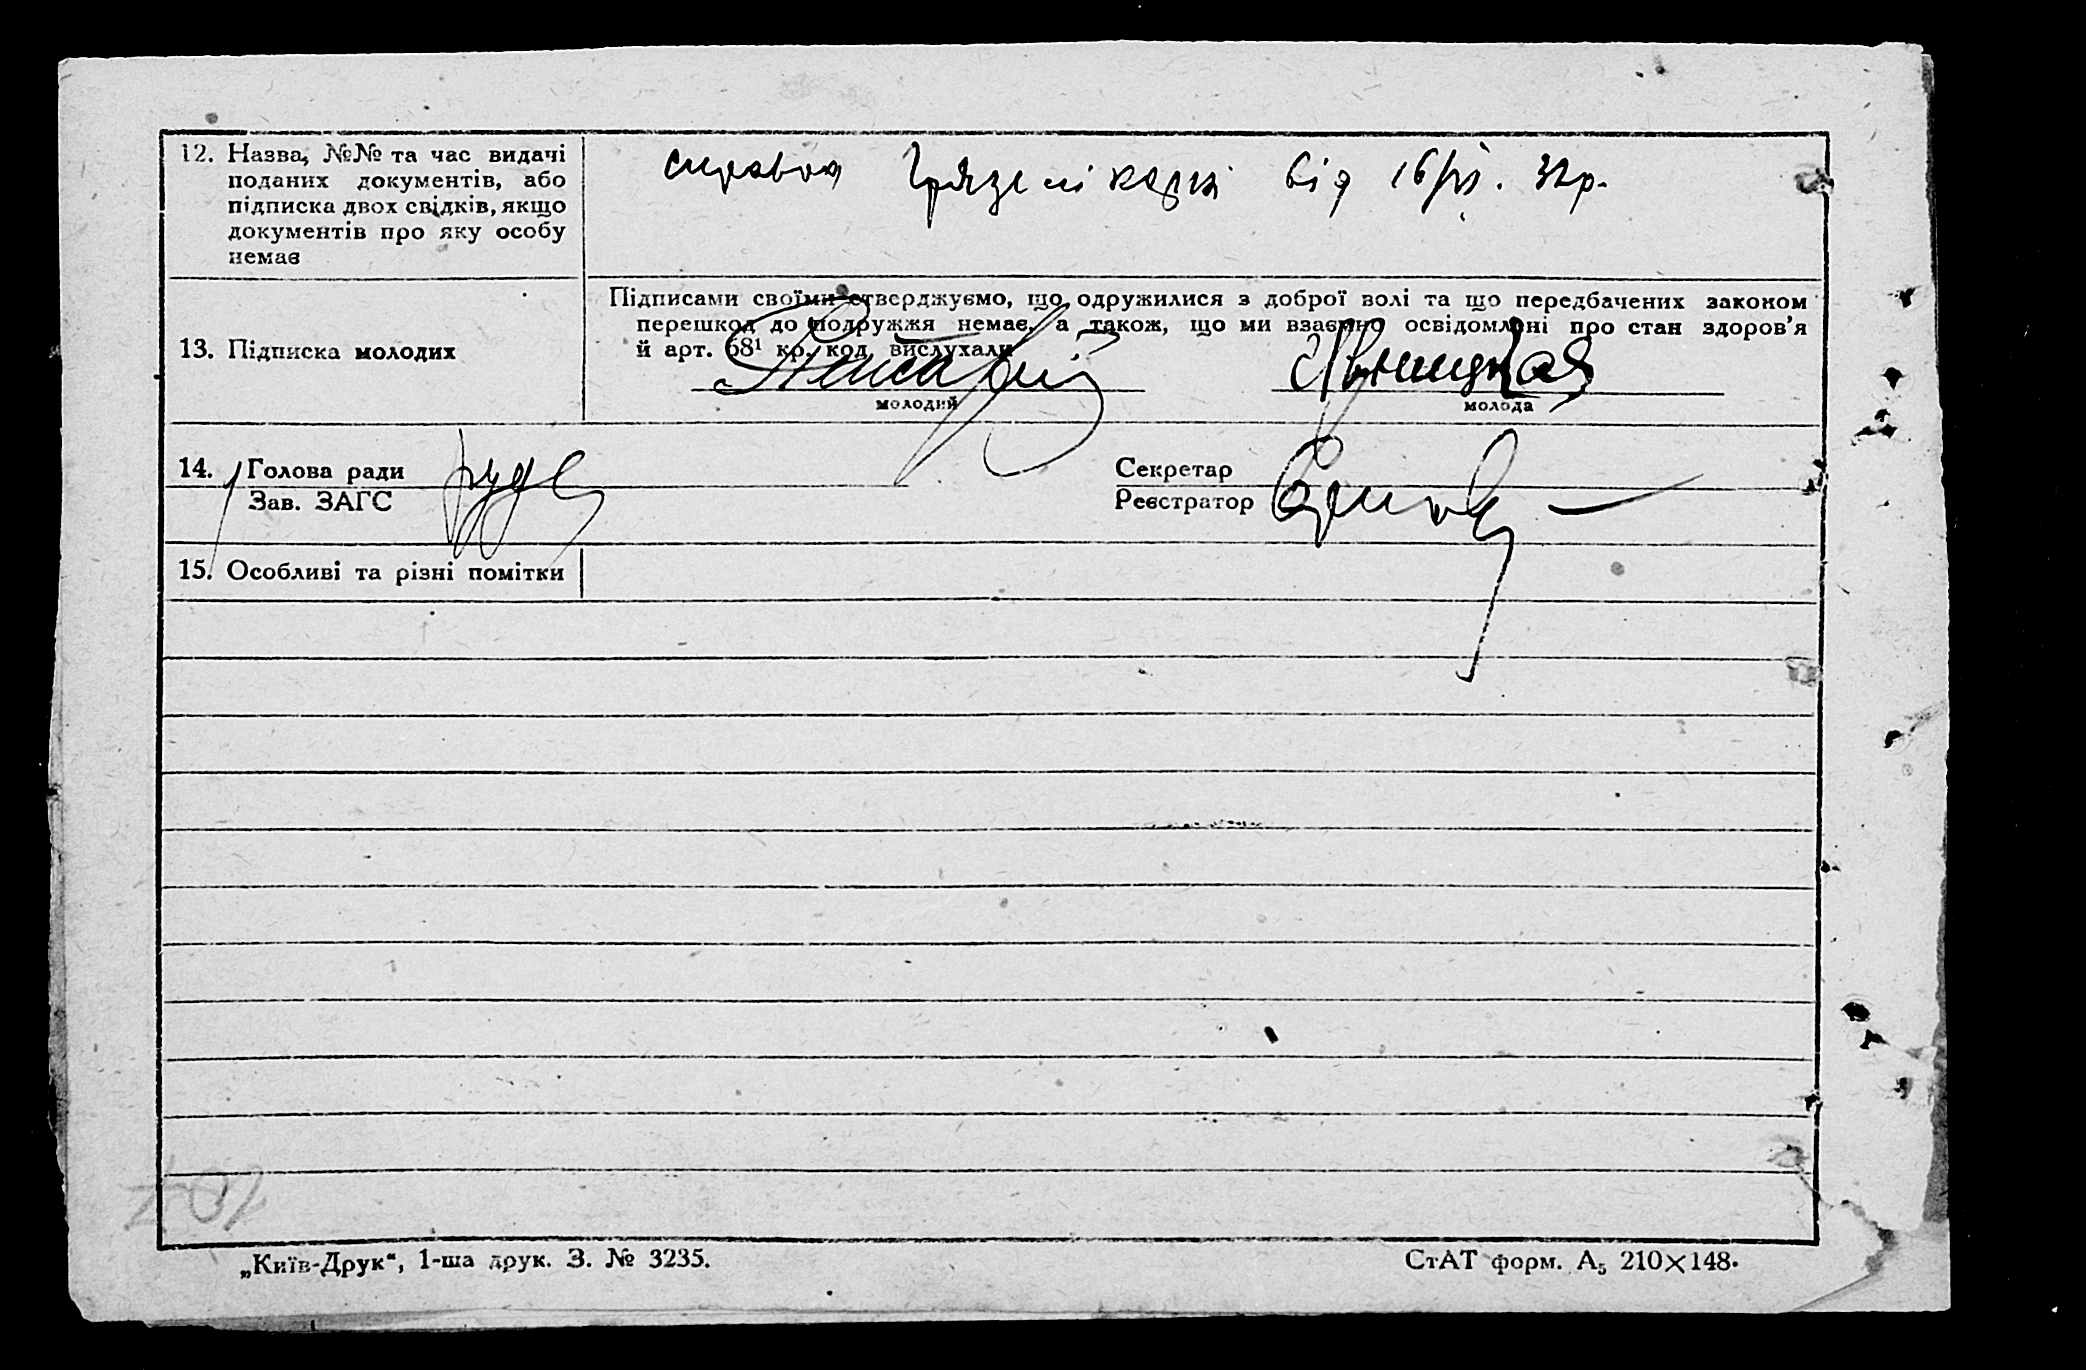 12. Назва, №№ та час видачі
поданих документів, або
підписка двох свідків, якщо
документів про яку особу
немає
справка від 32 р.
Підписами своїми стверджуємо, що одружилися з доброї волі та що передбачених законом
перешкод до подружжя немає, а також, що ми взаємно освідомлені про стан здоров'я
й арт. 68¹ кр. код. вислухали
13. Підписка молодих
молодий
молода
14. Голова ради
Секретар
Зав. ЗАГС
Реєстратор
15. Особливі та різні помітки
„Київ-Друк“, 1-ша друк. З. № 3235.
СтАТ форм. А₅ 210×148.